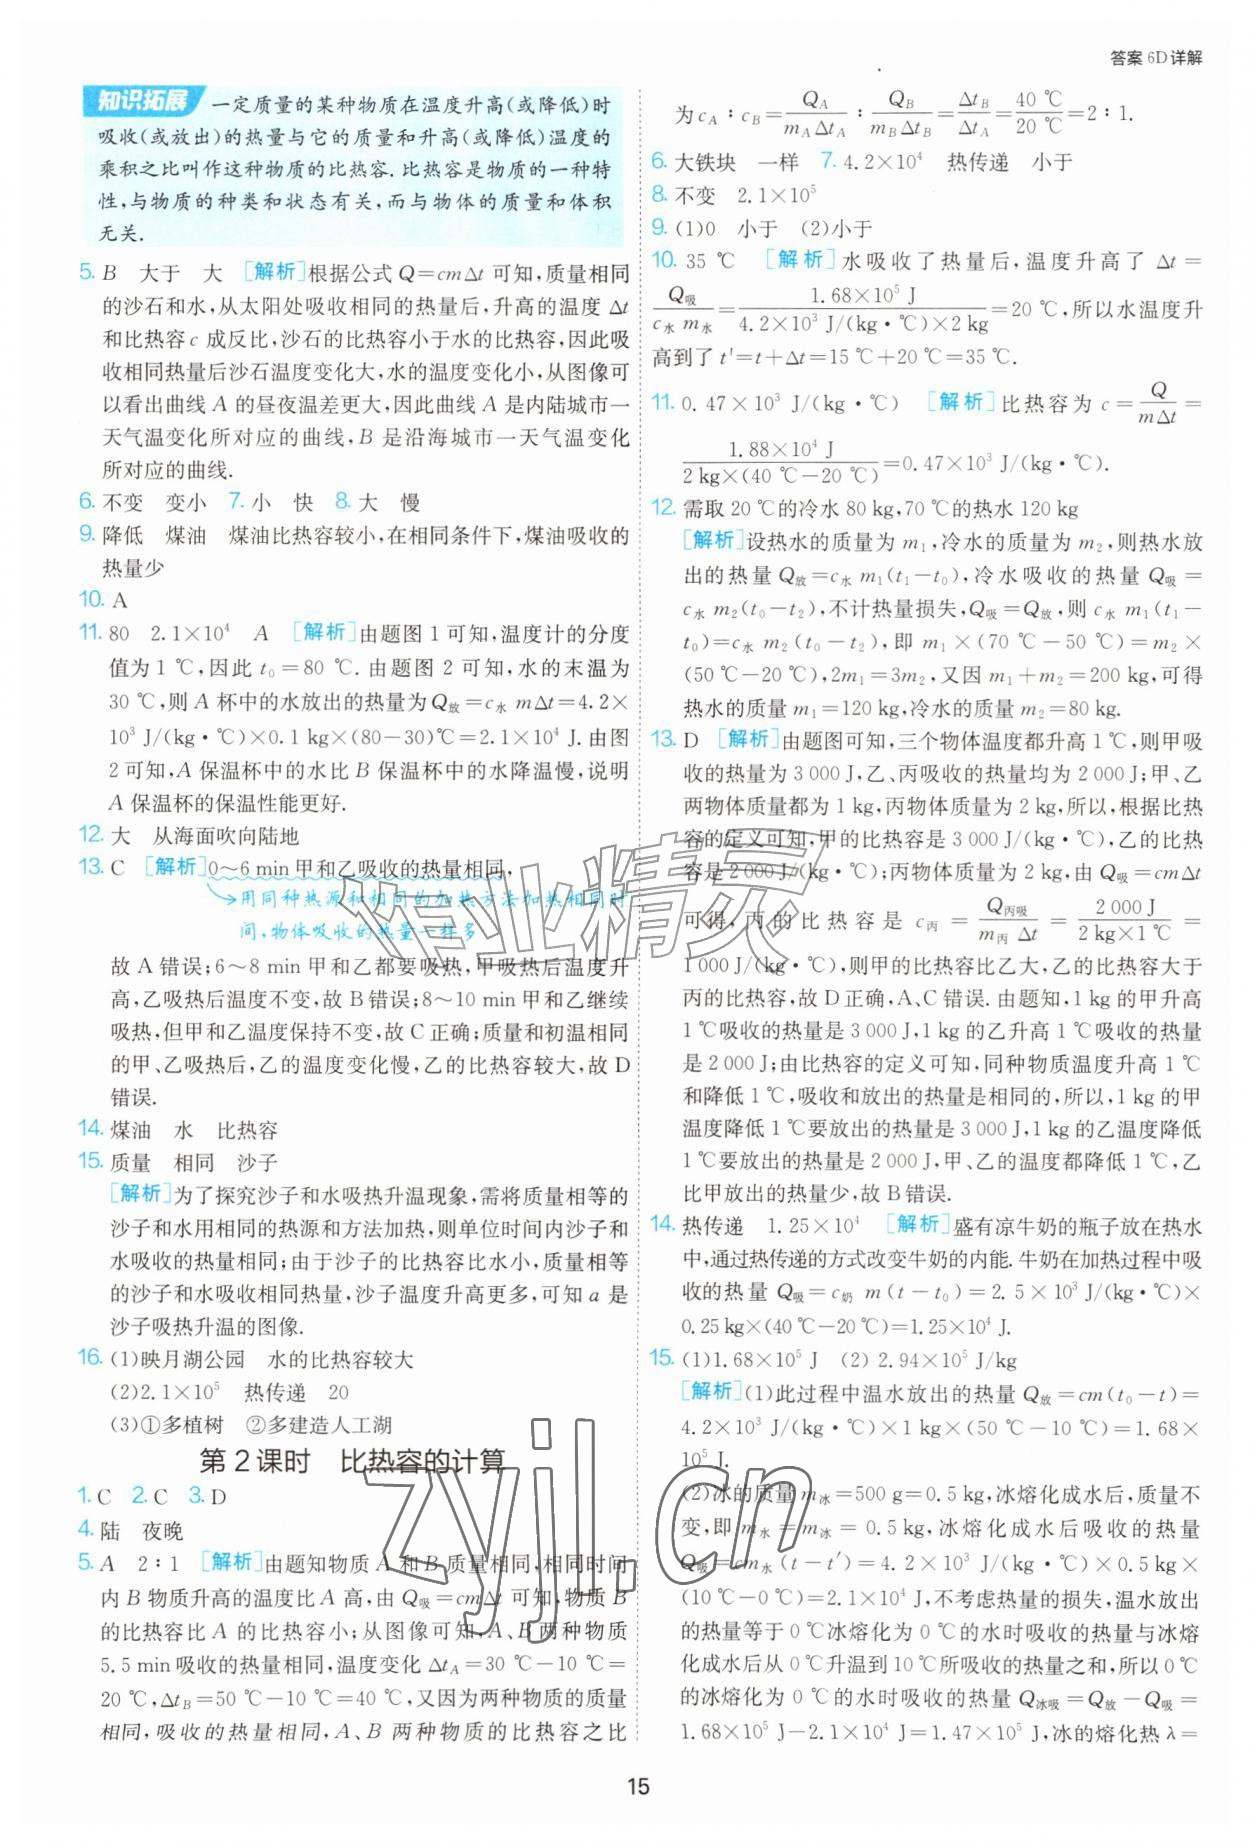 答案 6D详解
知识拓展 一定质量的某种物质在温度升高(或降低)时
吸收(或放出)的热量与它的质量和升高(或降低)温度的
乘积之比叫作这种物质的比热容.比热容是物质的一种特
性,与物质的种类和状态有关,而与物体的质量和体积
无关.
5. B 大于 大 [解析]根据公式 Q=cmΔt 可知,质量相同
的沙石和水,从太阳处吸收相同的热量后,升高的温度 Δt
和比热容 c 成反比,沙石的比热容小于水的比热容,因此吸
收相同热量后沙石温度变化大,水的温度变化小,从图像可
以看出曲线 A 的昼夜温差更大,因此曲线 A 是内陆城市一
天气温变化所对应的曲线,B 是沿海城市一天气温变化
所对应的曲线.
6. 不变 变小 7. 小 快 8. 大 慢
9. 降低 煤油 煤油比热容较小,在相同条件下,煤油吸收的
热量少
10. A
11. 80 2.1×10⁴ A [解析]由题图 1 可知,温度计的分度
值为 1 ℃,因此 t₀=80 ℃.由题图 2 可知,水的末温为
30 ℃,则 A 杯中的水放出的热量为Q放=c水 mΔt=4.2×
10³ J/(kg·℃)×0.1 kg×(80-30)℃=2.1×10⁴ J.由图
2可知,A 保温杯中的水比 B 保温杯中的水降温慢,说明
A 保温杯的保温性能更好.
12. 大 从海面吹向陆地
13. C [解析]0~6 min甲和乙吸收的热量相同,
用同种热源和相同的加热方法加热相同时
间,物体吸收的热量一样多
故 A 错误;6~8 min 甲和乙都要吸热,甲吸热后温度升
高,乙吸热后温度不变,故 B错误;8~10 min 甲和乙继续
吸热,但甲和乙温度保持不变,故 C正确;质量和初温相同
的甲、乙吸热后,乙的温度变化慢,乙的比热容较大,故 D
错误.
14. 煤油 水 比热容
15. 质量 相同 沙子
[解析]为了探究沙子和水吸热升温现象,需将质量相等的
沙子和水用相同的热源和方法加热,则单位时间内沙子和
水吸收的热量相同;由于沙子的比热容比水小,质量相等
的沙子和水吸收相同热量,沙子温度升高更多,可知 a 是
沙子吸热升温的图像.
16. (1)映月湖公园 水的比热容较大
(2)2.1×10⁵ 热传递 20
(3)①多植树 ②多建造人工湖
第 2 课时 比热容的计算
1. C 2. C 3. D
4. 陆 夜晚
5. A 2∶1 [解析]由题知物质 A 和 B 质量相同,相同时间
内 B 物质升高的温度比 A 高,由 Q吸=cmΔt 可知,物质 B
的比热容比 A 的比热容小;从图像可知,A、B 两种物质
5.5 min吸收的热量相同,温度变化 ΔtA=30 ℃-10 ℃=
20 ℃,ΔtB=50 ℃-10 ℃=40 ℃,又因为两种物质的质量
相同,吸收的热量相同,A、B 两种物质的比热容之比
为 cA∶cB=QA/(mAΔtA)∶QB/(mBΔtB)=ΔtB/ΔtA=40 ℃/20 ℃=2∶1.
6. 大铁块 一样 7. 4.2×10⁴ 热传递 小于
8. 不变 2.1×10⁵
9. (1)0 小于 (2)小于
10. 35 ℃ [解析]水吸收了热量后,温度升高了 Δt=
Q吸/(c水 m水)=1.68×10⁵ J/(4.2×10³ J/(kg·℃)×2 kg)=20 ℃,所以水温度升
高到了 t′=t+Δt=15 ℃+20 ℃=35 ℃.
11. 0.47×10³ J/(kg·℃) [解析]比热容为 c=Q/(mΔt)=
1.88×10⁴ J/(2 kg×(40 ℃-20 ℃))=0.47×10³ J/(kg·℃).
12. 需取 20 ℃的冷水 80 kg,70 ℃的热水 120 kg
[解析]设热水的质量为 m₁,冷水的质量为 m₂,则热水放
出的热量 Q放=c水 m₁(t₁-t₀),冷水吸收的热量 Q吸=
c水 m₂(t₀-t₂),不计热量损失,Q吸=Q放,则 c水 m₁(t₁-
t₀)=c水 m₂(t₀-t₂),即 m₁×(70 ℃-50 ℃)=m₂×
(50 ℃-20 ℃),2m₁=3m₂,又因 m₁+m₂=200 kg,可得
热水的质量 m₁=120 kg,冷水的质量 m₂=80 kg.
13. D [解析]由题图可知,三个物体温度都升高 1 ℃,则甲吸
收的热量为 3 000 J,乙、丙吸收的热量均为 2 000 J;甲、乙
两物体质量都为 1 kg,丙物体质量为 2 kg,所以,根据比热
容的定义可知,甲的比热容是 3 000 J/(kg·℃),乙的比热
容是2 000 J/(kg·℃);丙物体质量为 2 kg,由 Q吸=cmΔt
可得,丙的比热容是 c丙=Q丙吸/(m丙 Δt)=2 000 J/(2 kg×1 ℃)=
1 000 J/(kg·℃),则甲的比热容比乙大,乙的比热容大于
丙的比热容,故 D正确,A、C 错误.由题知,1 kg 的甲升高
1 ℃吸收的热量是 3 000 J,1 kg 的乙升高 1 ℃吸收的热量
是 2 000 J;由比热容的定义可知,同种物质温度升高 1 ℃
和降低 1 ℃,吸收和放出的热量是相同的,所以,1 kg 的甲
温度降低 1 ℃要放出的热量是 3 000 J,1 kg 的乙温度降低
1 ℃要放出的热量是 2 000 J,甲、乙的温度都降低 1 ℃,乙
比甲放出的热量少,故 B错误.
14. 热传递 1.25×10⁴ [解析]盛有凉牛奶的瓶子放在热水
中,通过热传递的方式改变牛奶的内能.牛奶在加热过程中吸
收的热量 Q吸=c奶 m(t-t₀)=2.5×10³ J/(kg·℃)×
0.25 kg×(40 ℃-20 ℃)=1.25×10⁴ J.
15. (1)1.68×10⁵ J (2) 2.94×10⁵ J/kg
[解析](1)此过程中温水放出的热量 Q放=cm(t₀-t)=
4.2×10³ J/(kg·℃)×1 kg×(50 ℃-10 ℃)=1.68×
10⁵ J.
(2)冰的质量 m冰=500 g=0.5 kg,冰熔化成水后,质量不
变,即 m水=m冰=0.5 kg,冰熔化成水后吸收的热量
Q吸=cm水(t-t′)=4.2×10³ J/(kg·℃)×0.5 kg×
(10 ℃-0 ℃)=2.1×10⁴ J,不考虑热量的损失,温水放出
的热量等于 0 ℃冰熔化为 0 ℃的水时吸收的热量与冰熔
化成水后从 0 ℃升温到 10 ℃所吸收的热量之和,所以 0 ℃
的冰熔化为 0 ℃的水时吸收的热量 Q冰吸=Q放-Q吸=
1.68×10⁵ J-2.1×10⁴ J=1.47×10⁵ J,冰的熔化热 λ=
15
作业精灵
zyjl.cn